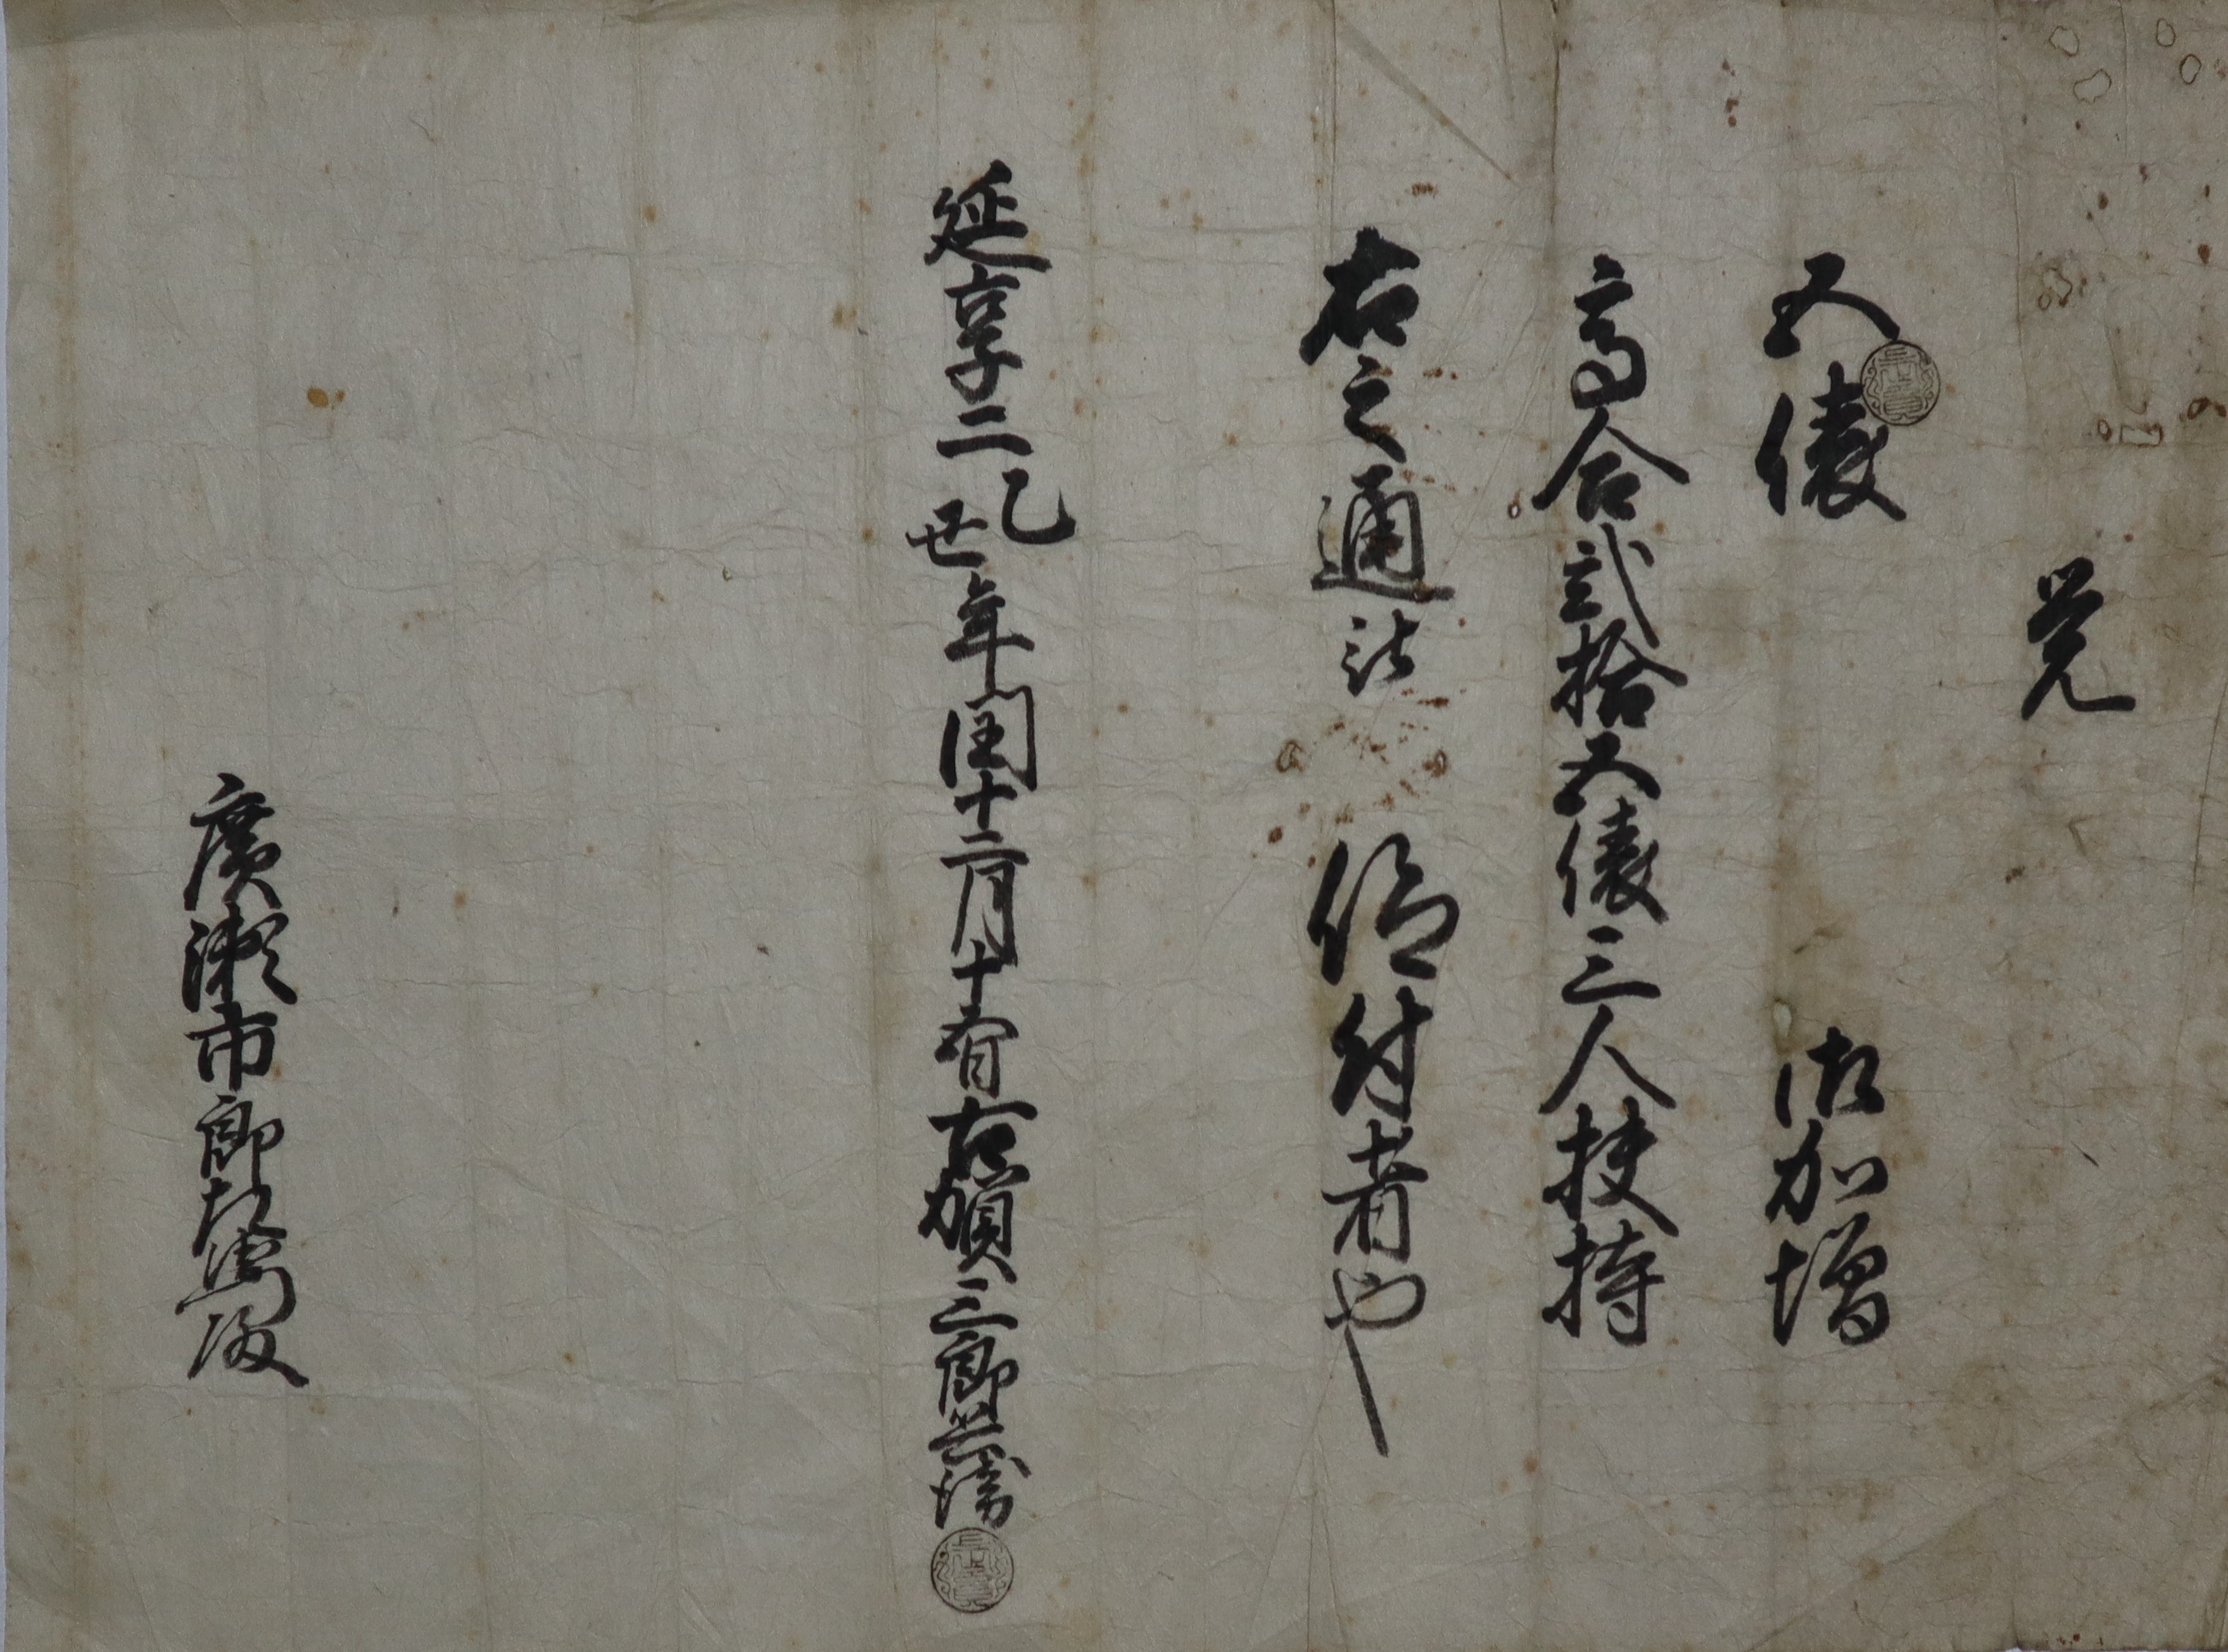 覚
五俵 御加増
高合弐拾五俵三人扶持
右之通被 仰付者也
延享二乙丑年閏十二月十五日古賀三郎兵衛
廣瀬市郎左衛門殿